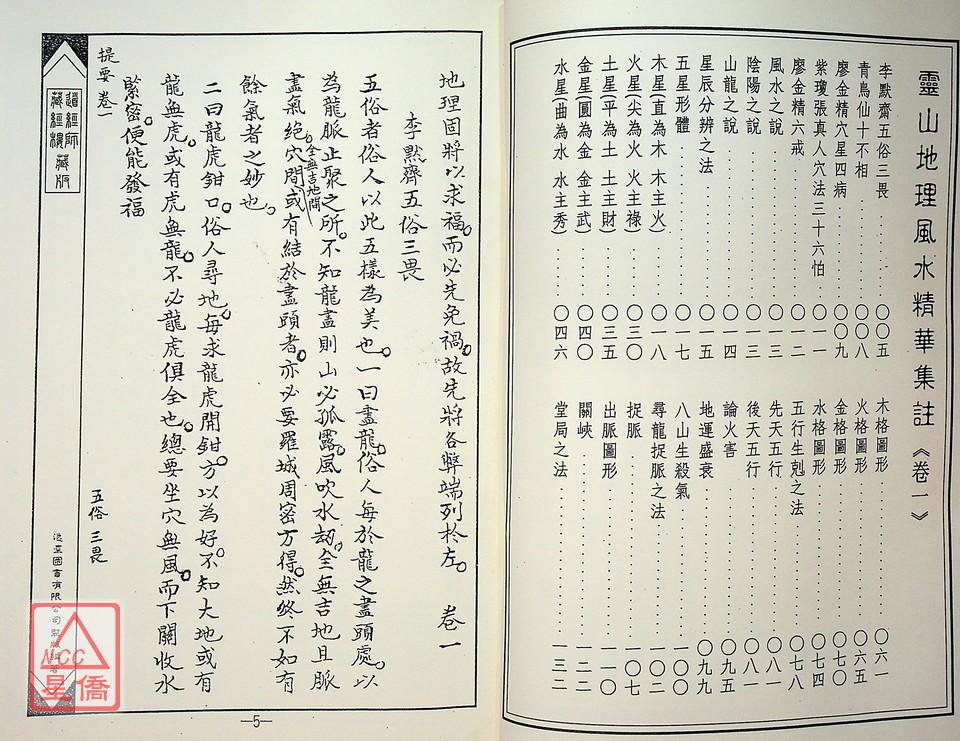 靈山地理風水精華集註《卷一》
李默齋五俗三畏……〇〇五
青鳥仙十不相……〇〇八
廖金精穴星四病……〇〇九
紫瓊張真人穴法三十六怕……〇一一
廖金精六戒……〇一二
風水之說……〇一三
陰陽之說……〇一三
山龍之說……〇一四
星辰分辨之法……〇一五
五星形體……〇一七
木星(直為木 木主火)……〇一八
火星(尖為火 火主祿)……〇三〇
土星(平為土 土主財)……〇三五
金星(圓為金 金主武)……〇四〇
水星(曲為水 水主秀)……〇四六
木格圖形……〇六一
火格圖形……〇六五
金格圖形……〇七〇
水格圖形……〇七四
五行生剋之法……〇七八
先天五行……〇八一
後天五行……〇八八
論火害……〇九五
地運盛衰……〇九九
八山生殺氣……一〇〇
尋龍捉脈之法……一〇二
捉脈……一〇七
出脈圖形……一一〇
關峽……一二二
堂局之法……一三二
地理固將以求福。而必先免禍。故先將各弊端列於左。 卷一
李默齋五俗三畏
五俗者俗人以此五樣為美也。一曰盡龍。俗人每於龍之盡頭處。以
為龍脈止聚之所。不知龍盡則山必孤露。風吹水劫。全無吉地且脈
盡氣絕。穴間或有結於盡頭者。亦必要羅城周密方得。然終不如有
全無吉地間
餘氣者之妙也。
二曰龍虎鉗口。俗人尋地。每求龍虎開鉗。方以為好。不知大地或有
龍無虎。或有虎無龍。不必龍虎俱全也。總要坐穴無風。而下關收水
緊密。便能發福
提要 卷一
五俗三畏
道經師
藏經樓藏版
—5—
NCC
星僑